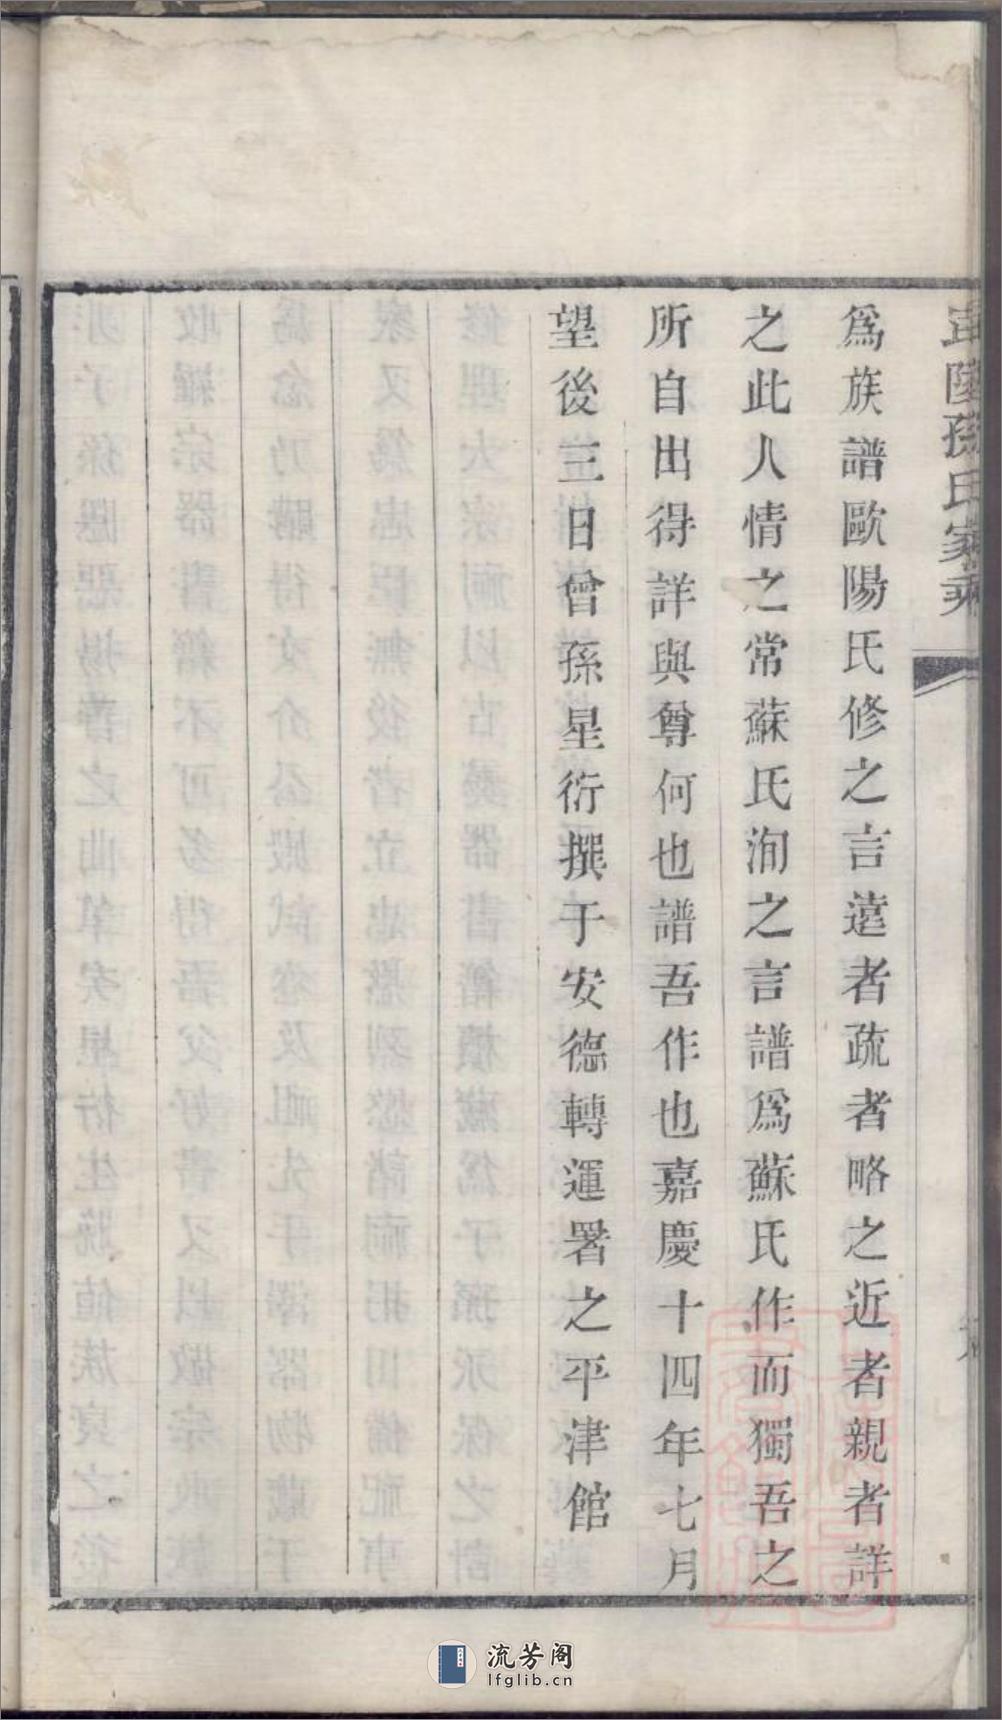 爲族譜歐陽氏修之言遠者疏者略之近者親者詳
之此人情之常蘇氏洵之言譜爲蘇氏作而獨吾之
所自出得詳與尊何也譜吾作也嘉慶十四年七月
望後三日曾孫星衍撰于安德轉運署之平津館
孫氏家乘
流芳阁
lfglib.cn